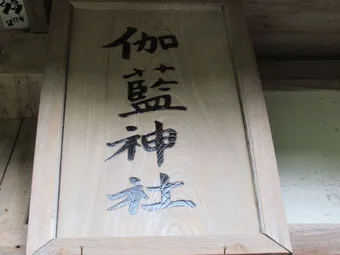 伽藍神社